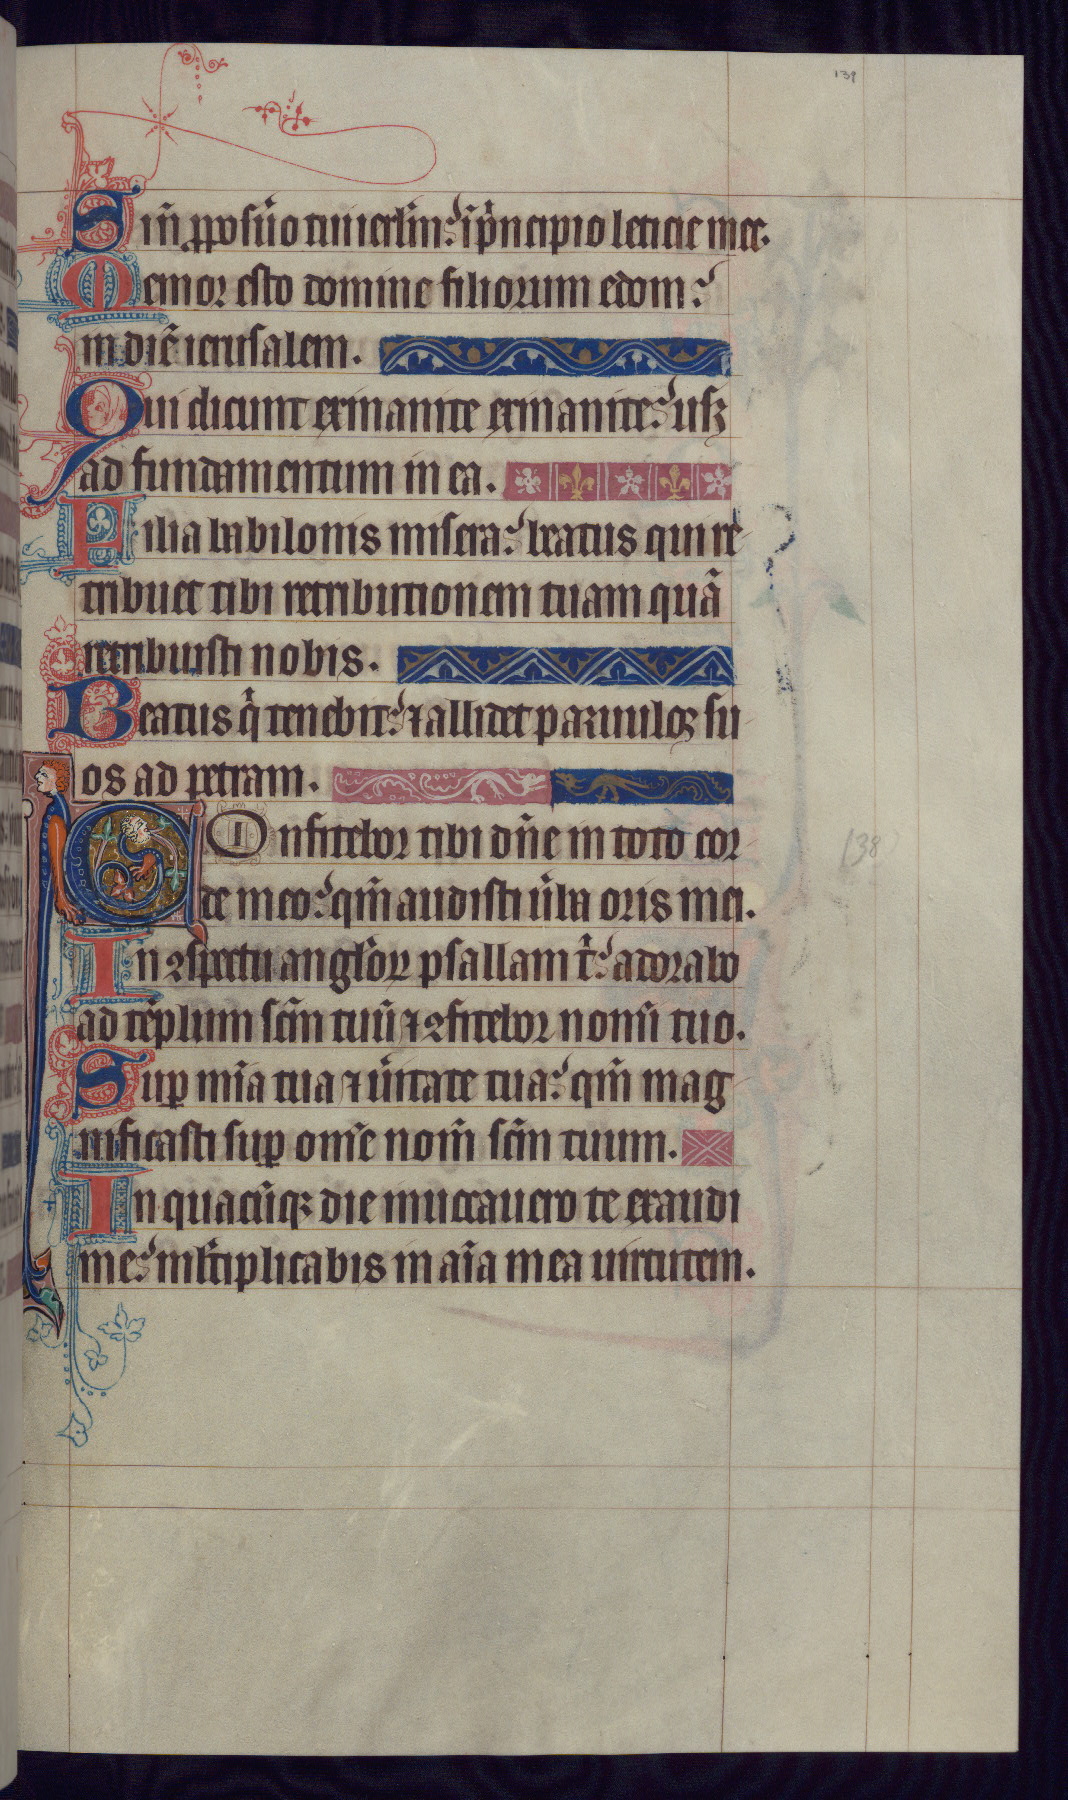 139
Si nͫ ꝓposuͦo tui ierlm̄: i pͥncipio leticie mee.
Memor esto domine filiorum edom:
in die ierusalem.
Qui dicunt exinanite exinanite: usqꝫ
ad fundamentum in ea.
Filia babilonis misera: beatus qui re
tribuet tibi retributionem tuam quā
retribuisti nobis.
Beatus qͥ tenebit: ⁊ allidet paruulos su
os ad petram.
Confitebor tibi dn̄e in toto cor
de meo: qm̄ audisti ūba oris mei.
In ꝯspectu angl̓oꝝ psallam t̄: adorabo
ad tēplum scm̄ tuū ⁊ ꝯfitebor nomī tuo.
Suꝑ mīa tua ⁊ ūitate tua: qm̄ mag
nificasti suꝑ om̄e nom̄ scm̄ tuum.
In quacūqꝫ die inuocauero te exaudi
me: ml̓tiplicabis in aīa mea uirtutem.
138